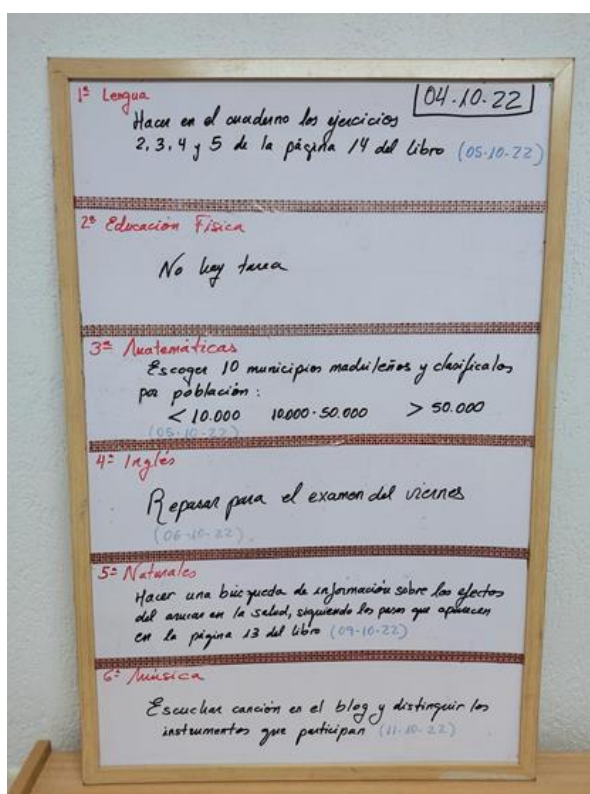 1ª Lengua
04.10.22
Hacer en el cuaderno los ejercicios
2, 3, 4 y 5 de la página 14 del libro (05-10-22)
2ª Educación Física
No hay tarea
3ª Matemáticas
Escoger 10 municipios madrileños y clasificalos
por población:
< 10.000 10.000-50.000 > 50.000
(05-10-22)
4ª Inglés
Repasar para el examen del viernes
(06-10-22)
5ª Naturales
Hacer una búsqueda de información sobre los efectos
del azucar en la salud, siguiendo los pasos que aparecen
en la página 13 del libro (09-10-22)
6ª Música
Escuchar canción en el blog y distinguir los
instrumentos que participan (11-10-22)